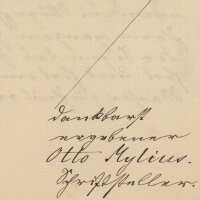 dankbarst
ergebener
Otto Mylius.
Schriftsteller.